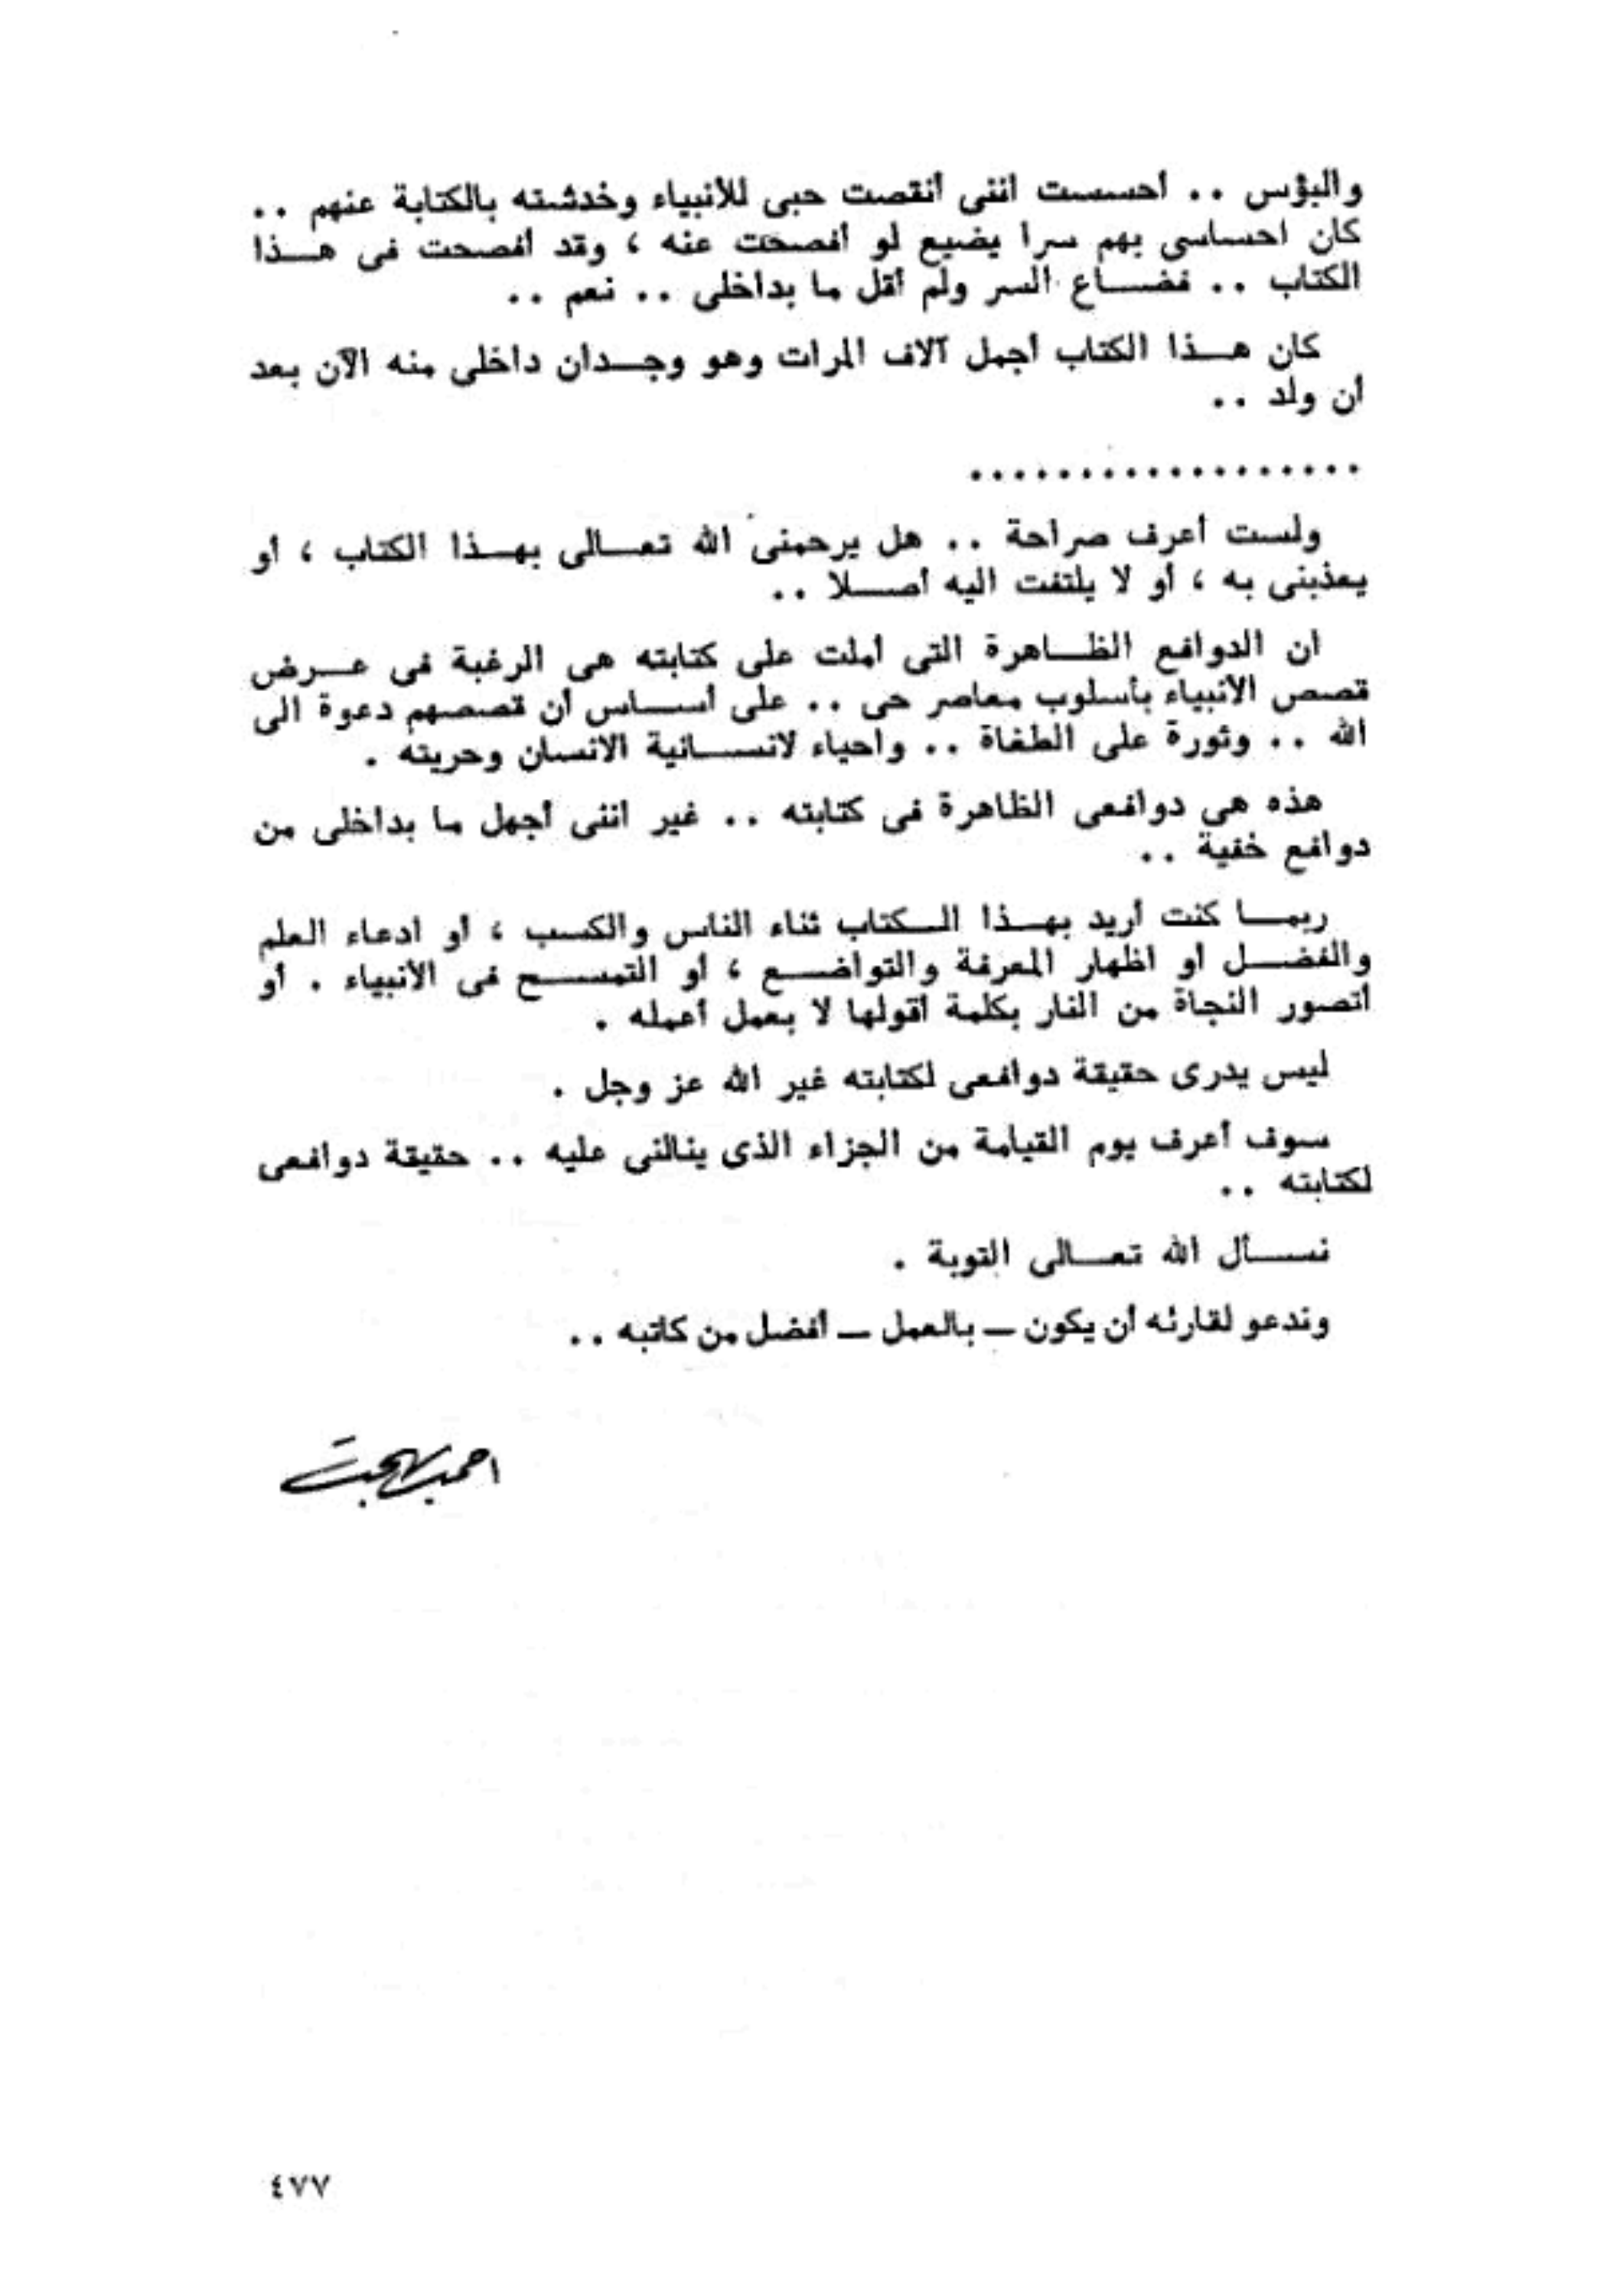 والبؤس .. أحسست اننى أنقصت حبى للأنبياء وخدشته بالكتابة عنهم ..
كان احساسى بهم سرا يضيع لو أفصحت عنه ، وقد أفصحت فى هـذا
الكتاب .. فضـاع السر ولم أقل ما بداخلى .. نعم ..
كان هـذا الكتاب أجمل آلاف المرات وهو وجـدان داخلى منه الآن بعد
أن ولد ..
..................
ولست أعرف صراحة .. هل يرحمنى الله تعـالى بهـذا الكتاب ، أو
يعذبنى به ، أو لا يلتفت اليه أصـلا ..
ان الدوافع الظـاهرة التى أملت على كتابته هى الرغبة فى عـرض
قصص الأنبياء بأسلوب معاصر حى .. على أسـاس أن قصصهم دعوة الى
الله .. وثورة على الطغاة .. واحياء لانسـانية الانسان وحريته .
هذه هى دوافعى الظاهرة فى كتابته .. غير اننى أجهل ما بداخلى من
دوافع خفية ..
ربمـا كنت أريد بهـذا الـكتاب ثناء الناس والكسب ، أو ادعاء العلم
والفضـل أو اظهار المعرفة والتواضـع ، أو التمسـح فى الأنبياء . أو
أتصور النجاة من النار بكلمة أقولها لا بعمل أعمله .
ليس يدرى حقيقة دوافعى لكتابته غير الله عز وجل .
سوف أعرف يوم القيامة من الجزاء الذى ينالنى عليه .. حقيقة دوافعى
لكتابته ..
نسـأل الله تعـالى التوبة .
وندعو لقارئه أن يكون ــ بالعمل ــ أفضل من كاتبه ..
احمد بهجت
٤٧٧